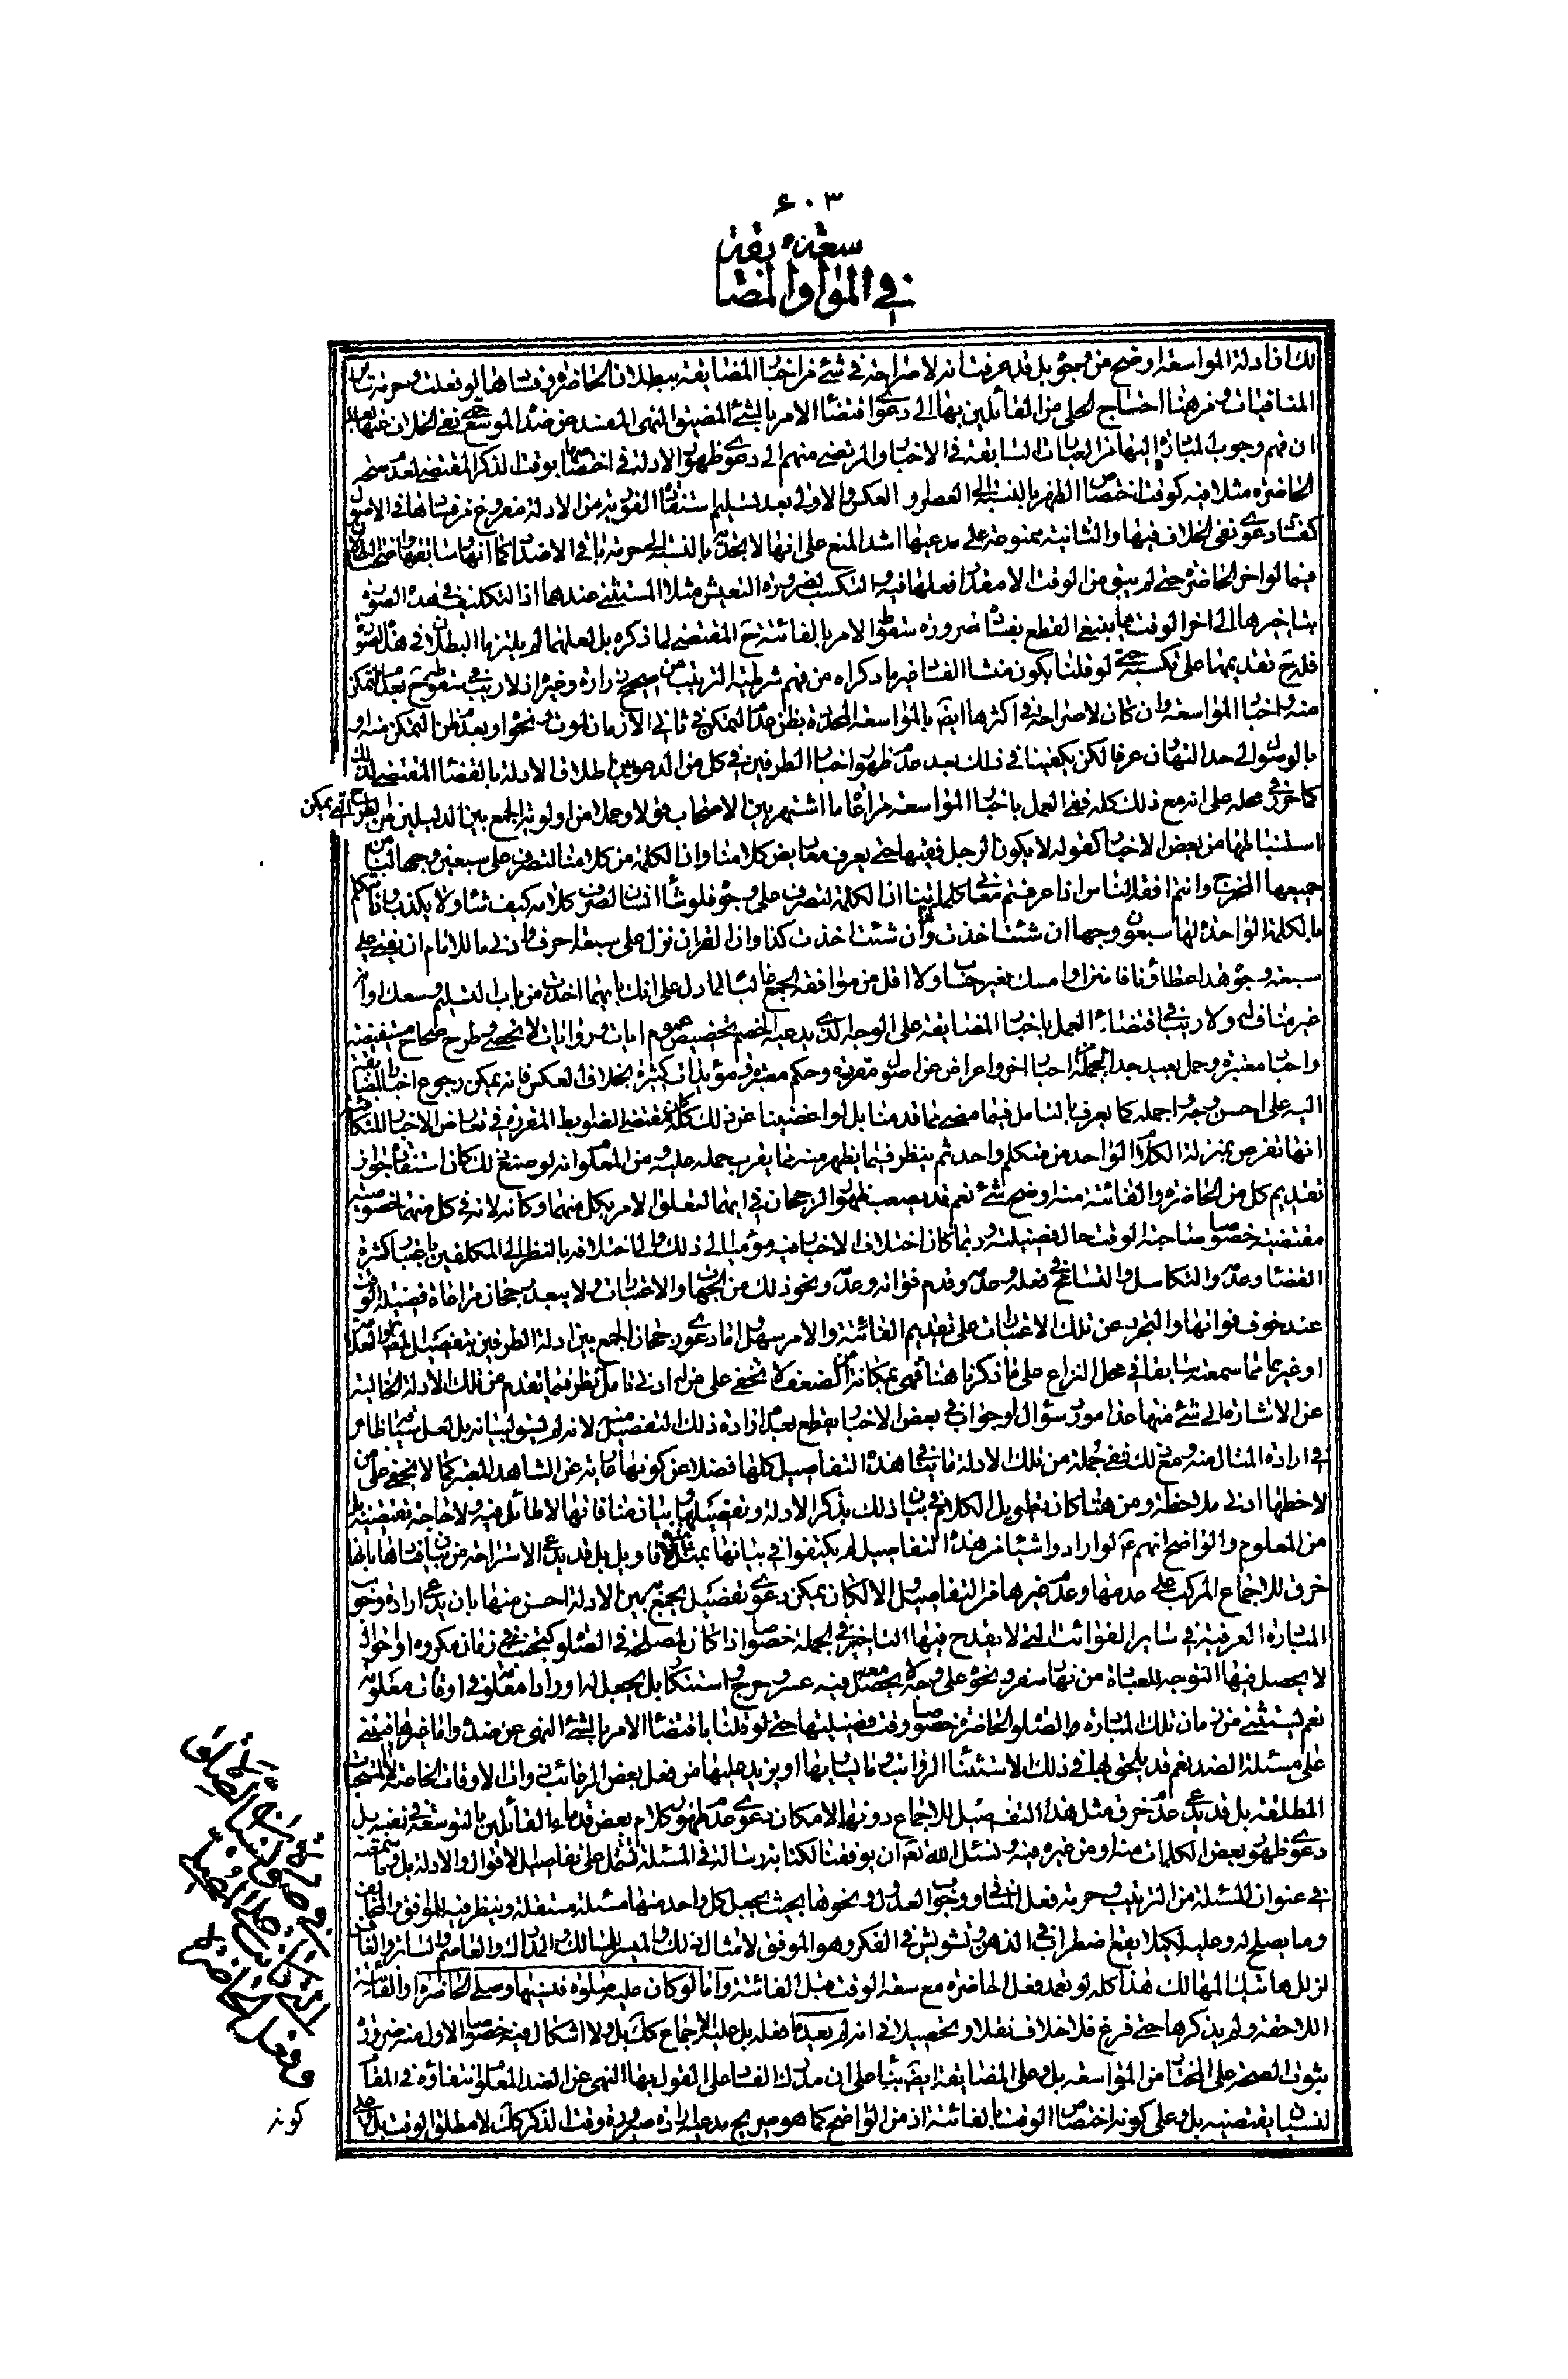 ٦٠٣
في المواسعة والمضايقة
لك ان ادلة المواسعة اوضح من وجوه بل قد عرفت انه لا صراحة في شئ من اخبار المضايقة ببطلان الحاضرة وفسادها لو فعلت وحرمة سائر
المنافيات ومن هنا احتاج الحلي من القائلين بها الى دعوى اقتضاء الامر بالشئ المضيق النهي المفسد عن ضده الموسع حتى نفى الخلاف عنها بعد
ان فهم وجوب المبادرة اليها من العبارات السابقة في الاخبار والمرتضى منهم الى دعوى ظهور الادلة في اختصاصها بوقت الذكر المقتضي لعدم صحة
الحاضرة مثلا فيه كوقت اختصاص الظهر بالنسبة الى العصر والعكس والاولى بعد تسليم استفادة الفورية من الادلة مفروغ من فسادها في الاصول
كفساد دعوى نفي الخلاف فيها والثانية ممنوعة على مدعيها اشد المنع على انها لا تجديه بالنسبة الى حرمة باقي الاضداد كما انها وسابقتها
فيما لو اخر الحاضرة حتى لم يبق من الوقت الا مقدار فعلها فيه والتكسب لضرورة التعيش مثلا المستثنى عندهما اذ التكليف في هذه الصورة
بتاخيرها الى اخر الوقت مما ينبغي القطع بفساده ضرورة سقوط الامر بالفائتة ح المقتضي لما ذكره بل لعلهما لم يلتزما البطلان في هذه الصورة
فلو قدمها على تكسبه حتى لو قلنا بكون منشا الفساد غير ما ذكراه من فهم شرطية الترتيب من صحيح زرارة وغيره اذ لا ريب في سقوطه ح بعد التمكن
منه واخبار المواسعة وان كان لا صراحة في اكثرها ايض بالمواسعة المحددة بظن عدم التمكن في ثاني الازمان لموت ونحوه او بعدم ظن التمكن منه او
بالوصول الى حد التهاون عرفا لكن يكفينا في ذلك بعد عدم ظهور اخبار الطرفين في كل من الدعويين اطلاق الادلة بالقضاء المقتضي لذلك
كما حرر في محله على انه مع ذلك كله ففي العمل باخبار المواسعة مراعاة ما اشتهر بين الاصحاب قولا وعملا من اولوية الجمع بين الدليلين من الطرح التي يمكن
استنباطها من بعض الاخبار كقوله لا يكون الرجل فقيها حتى يعرف معاريض كلامنا وان الكلمة من كلامنا لتصرف على سبعين وجها لنا من
جميعها المخرج وانتم افقه الناس اذا عرفتم معاني كلامنا ان الكلمة لتصرف على وجوه فلو شاء انسان لصرف كلامه كيف شاء ولا يكذب وانا نتكلم
بالكلمة الواحدة لها سبعون وجها ان شئت اخذت كذا وان شئت اخذت كذا وان القران نزل على سبعة احرف وادنى ما للامام ان يفتي على
سبعة وجوه هذا عطاؤنا فامنن او امسك بغير حساب ولا اقل من موافقة الجمع غالبا لما دل على انك بايهما اخذت من باب التسليم وسعك او انه
غير مناف له ولا ريب في اقتضاء العمل باخبار المضايقة على الوجه الذي يدعيه الخصم تخصيص عموم ايات وروايات لا تحصى وطرح صحاح مستفيضة
واخبار معتبرة وحمل بعيد جدا لجملة اخبار اخر واعراض عن اصول مقررة وحكم معتبرة ومؤيدات كثيرة بخلاف العكس فانه يمكن رجوع اخبار المضايقة
اليه على احسن وجه واجمله كما يعرف بالتامل فيما مضى مما قدمنا بل لو اغضينا عن ذلك كله كان مقتضى الضوابط المقررة في تعارض الاخبار المتكافئة
انها تفرض بمنزلة الكلام الواحد من متكلم واحد ثم ينظر فيما يظهر منه مما يقرب حمله عليه ومن المعلوم انه لو صنع ذلك كان استفادة جواز
تقديم كل من الحاضرة والفائتة منه اوضح شئ نعم قد يصعب ظهور الرجحان في ايهما لتعلق الامر بكل منهما وكانه لانه في كل منهما خصوصية
مقتضية خصوصا صاحبة الوقت حال فضيلته وربما كان اختلاف الاخبار فيه مؤميا الى ذلك والى اختلافه بالنظر الى المكلفين باعتبار كثرة
القضاء وعدمه والتكاسل والتسامح في فعله وعدمه وقدم فواته وعدمه ونحو ذلك من الجهات والاعتبارات ولا يبعد رجحان مراعاة فضيلة الوقت
عند خوف فواتها والتجرد عن تلك الاعتبارات على تقديم الفائتة والامر سهل اما دعوى رجحان الجمع بين ادلة الطرفين بتفصيل
او غيرهما مما سمعته سابقا في محل النزاع على ما ذكرنا هنا فهي بمكانة من الضعف لا تخفى على من له ادنى تامل ونظر فيما تقدم من تلك الادلة الخالية
عن الاشارة الى شئ منها عدا مورد سؤال او جواب في بعض الاخبار يقطع بعدم ارادة ذلك التفصيل منه لانه لم يسق لبيانه بل لعل سياقه ظاهر
في ارادة المثال منه ومع ذلك ففي جملة من تلك الادلة ما ينافي هذه التفاصيل كلها فضلا عن كونها عارية عن الشاهد المعتبر كما لا يخفى على من
لاحظها ادنى ملاحظة ومن هنا كان تطويل الكلام في بيان ذلك بذكر الادلة وتفصيلها وبيان منافاتها لا طائل فيه ولا حاجة تقتضيه بل
من المعلوم والواضح انهم ع لو ارادوا شيئا من هذه التفاصيل لم يكتفوا في بيانها بمثل هذه الاقاويل بل قد يدعى الاستراحة من بيان فسادها بانها
خرق للاجماع المركب على عدمها وعدم غيرها من التفاصيل والا لكان يمكن دعوى تفصيل يجمع به بين الادلة احسن منها بان يدعى ارادة وجوب
المبادرة العرفية في سائر الفوائت التي لا يقدح فيها التاخير في الجملة خصوصا اذا كان لمصلحة في الصلوة كتجنب زمان مكروه او احوال
لا يحصل فيها التوجه للعبادة من نهار سفر ونحوه على وجه لا يحصل معه فيه عسر وحرج واستنكار بل يجعل له اورادا معلومة في اوقات معلومة
نعم يستثنى من زمان تلك المبادرة الصلوة الحاضرة خصوصا وقت فضيلتها حتى لو قلنا باقتضاء الامر بالشئ النهي عن ضده واما غيرها فيبنى
على مسئلة الضد نعم قد يلحق بها في ذلك الاستثناء الرواتب وما يساويها او يزيد عليها من فعل بعض الرغائب ذوات الاوقات الخاصة لا المستحبات
المطلقة بل قد يدعى عدم خرق مثل هذا التفصيل للاجماع دونها لامكان دعوى عدم ظهور كلام بعض قدماء القائلين بالتوسعة في نفيه بل
دعوى ظهور بعض الكلمات منه او من غيره فيه ونسئل الله تع ان يوفقنا لكتابة رسالة في المسئلة تشتمل على تفاصيل الاقوال والادلة بل وما سمعته
في عنوان المسئلة من الترتيب وحرمة فعل المنافي ووجوب العدول ونحوها بحيث يجعل كل واحد منها مسئلة مستقلة وينظر فيه الموافق والمخالف
وما يصلح له وعليه لكيلا يقع اضطراب في الذهن وتشويش في الفكر وهو الموفق لامثال ذلك والميسر للسالك والعاصم والساتر
لزلل هاتيك المهالك هذا كله لو تعمد فعل الحاضرة مع سعة الوقت قبل الفائتة واما لو كان عليه صلوة فنسيها وصلى الحاضرة او الفائتة
اللاحقة ولم يذكرها حتى فرغ فلا خلاف نقلا وتحصيلا في انه لم يعد ما فعله بل عليه الاجماع كك بل ولا اشكال فيه خصوصا الاول منه ضرورة
ثبوت الصحة على المختار من المواسعة بل وعلى المضايقة ايض بناء على ان مدرك الفساد على القول بها النهي عن الضد المعلوم انتفاؤه في المقام
لنسيان يقتضيه بل وعلى كونه اختصاص الوقت بالفائتة اذ من الواضح كما هو صريح مدعيه ارادة صيرورة وقت الذكر كك لا مطلق الوقت بل وعلى
كونه